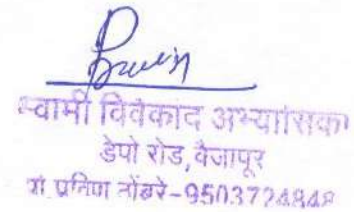 स्वामी विवेकांद अभ्यासिका
डेपो रोड, वैजापूर
प्रा. प्रविण तोंबरे-9503724848